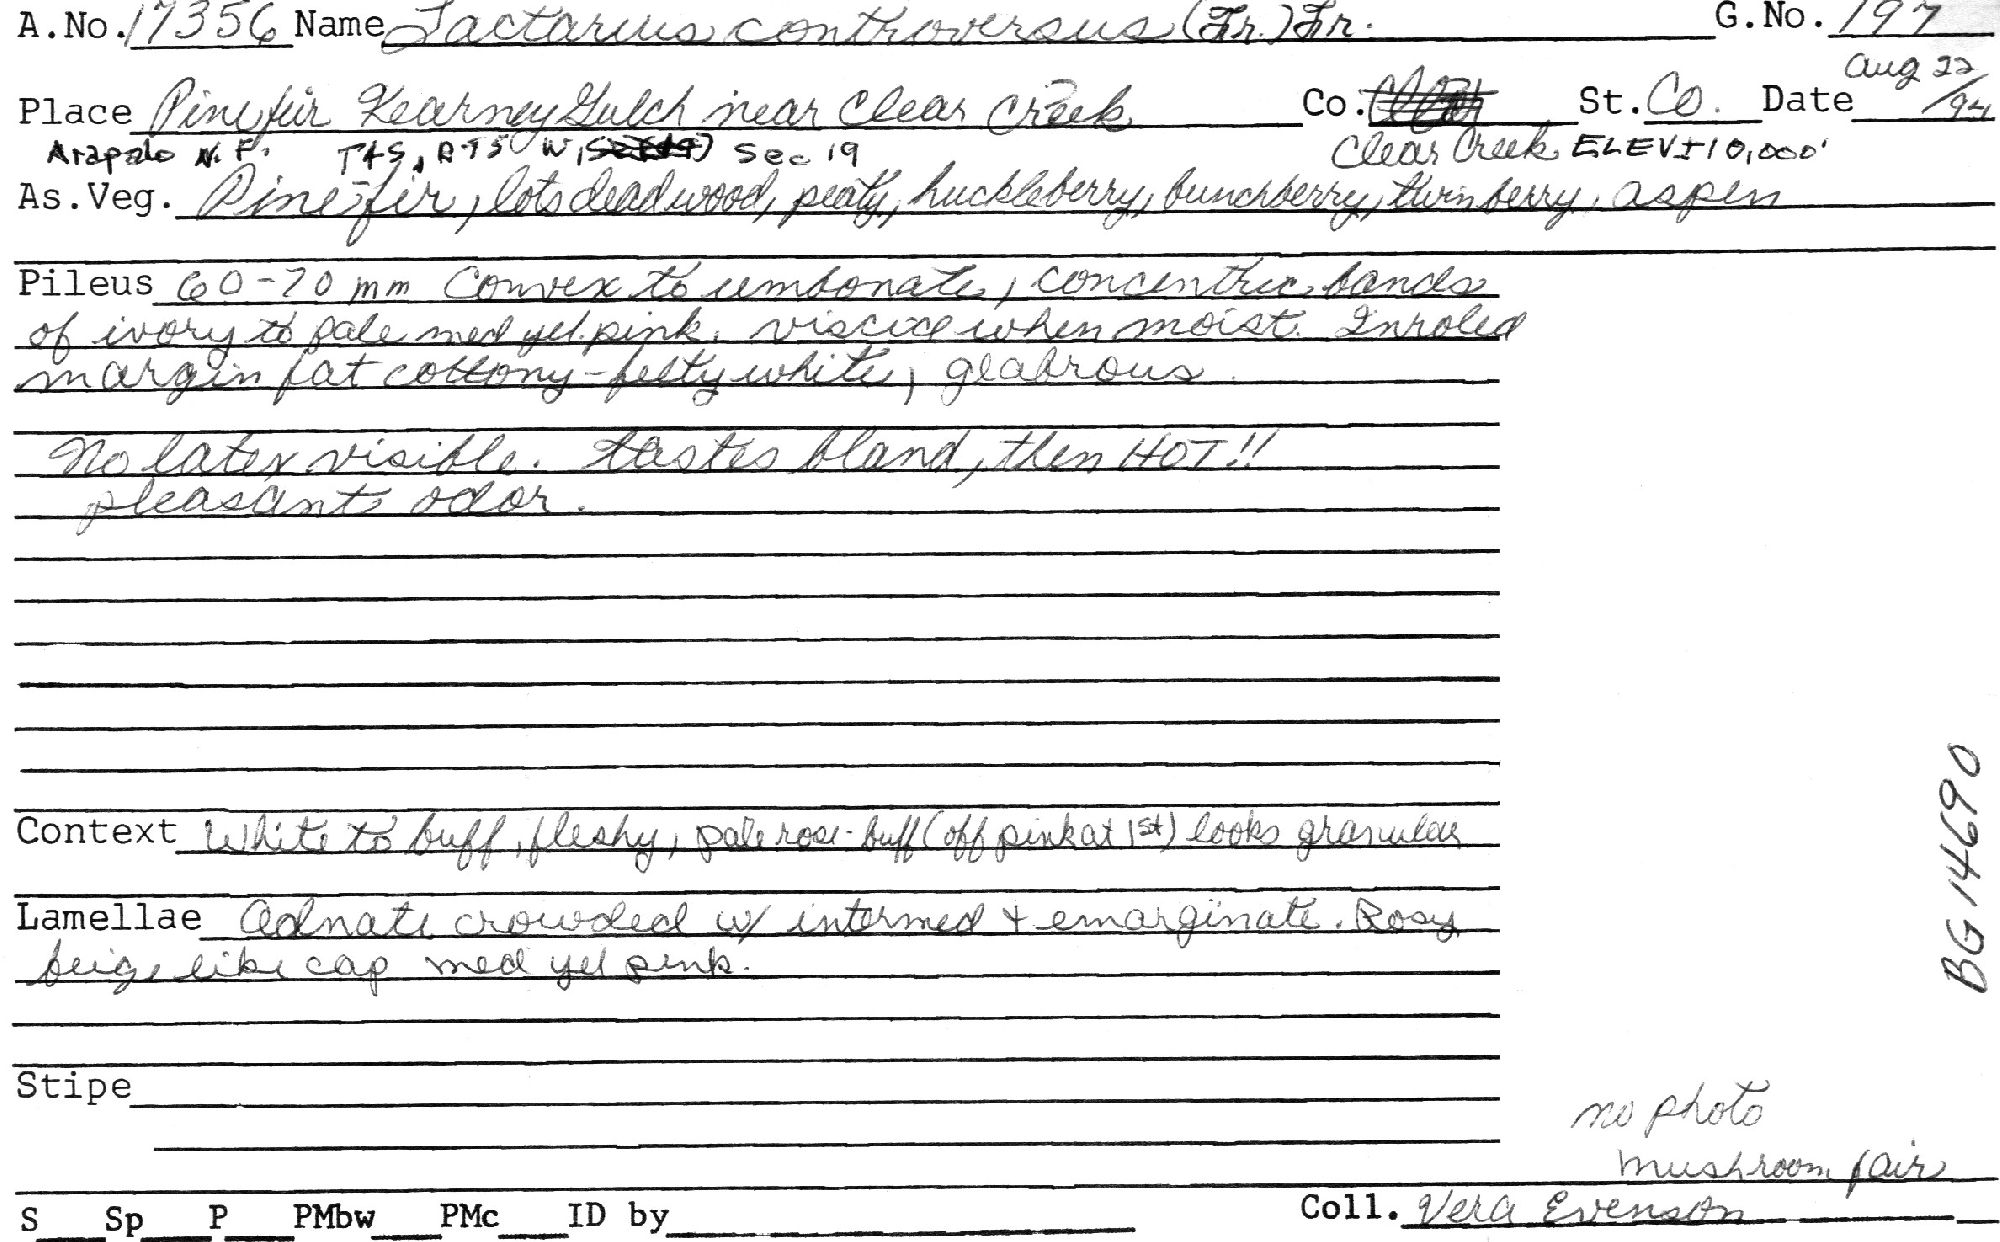 A.No. 17356 Name Lactarius controversus (Fr.) Fr. G.No. 197
Place Pine fir Kearney Gulch near Clear Creek Co. St. Co. Date Aug 22/94
Arapaho N.F. T4S, R75 W, Sec 19 Clear Creek ELEV ± 10,000'
As.Veg. Pine-fir, lots deadwood, peaty, huckleberry, bunchberry, twinberry, aspen
Pileus 60-70 mm Convex to umbonate, concentric bands
of ivory to pale med yel. pink, viscid when moist. Inroled
margin fat cottony-felty white, glabrous
No latex visible. tastes bland, then HOT!!
pleasant odor.
Context White to buff, fleshy, pale rose-buff (off pink at 1st) looks granular
Lamellae Adnate crowded w/ intermed + emarginate. Rosy
beige like cap med yel pink.
Stipe
no photo
mushroom fair
S Sp P PMbw PMc ID by Coll. Vera Evenson
BG 14690